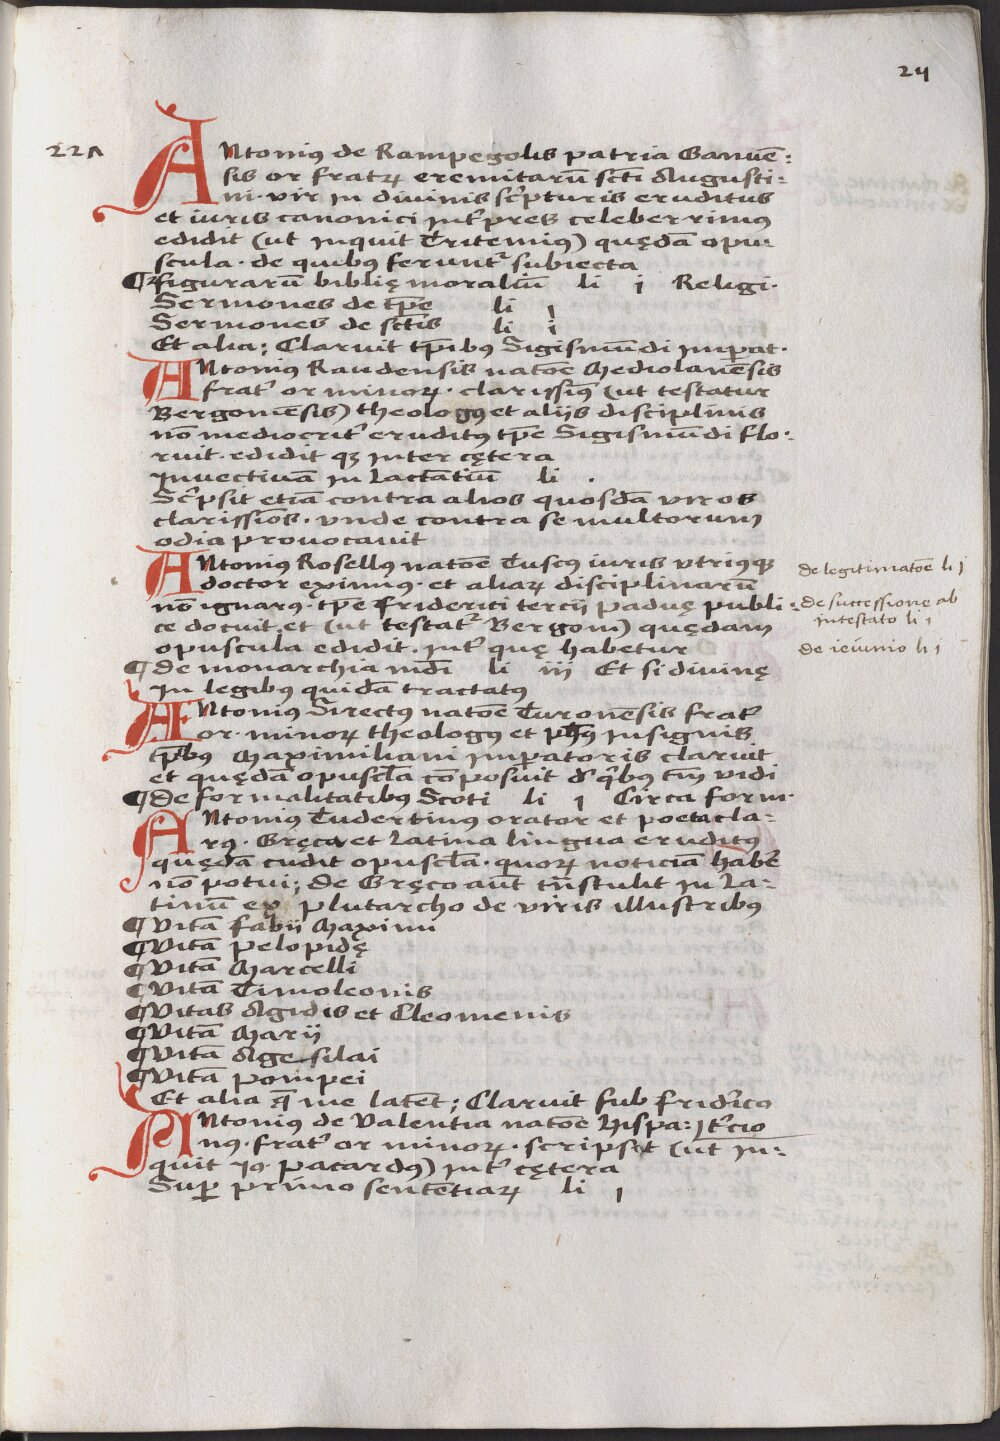 24
22A
ANtonių de Rampegolis patria Ganuē:
sis or fratꝝ eremitarū scti Augusti:
ni. vir in diuinis scpturis eruditus
et iuris canonici intpres celeberrimus
edidit (ut inquit Tritemių) quędā opu:
scula. de quibų ferunt subiecta
¶ figurarū biblię moraliū li i Religi.
Sermones de tpe li i
Sermones de sctis li i
Et alia; Claruit tpibų Sigismūdi impat.
ANtonius Raudensis natōe Mediolanēsis
frat or minoꝝ. clarissimų (ut testatur
Bergomēsis) theologų et alijs disciplinis
nō mediocrit eruditų tpe Sigismūdi flo:
ruit. edidit qꝫ inter cętera
Inuectiuā in Lactātiū li .
Scpsit etiā contra alios quosdā viros
clarissimos. vnde contra se multorum
odia prouocauit
ANtonių Rosellų natōe Tuscų iuris vtriųqꝫ
doctor eximių. et aliaꝝ disciplinarū
nō ignarų. tpe friderici tercij Padue publi:
ce docuit. et (ut testat Bergom) quędam
opuscula edidit. int quę habetur
¶ de monarchia mūdi li iii Et si diuinę
In legibų quidā tractatų
de legitimatōe li i
de successione ab
intestato li i
de ieiunio li i
ANtonių Sirectų natōe Turonēsis frat
or. minoꝝ theologų et phus insignis
tpibus Maximiliani impatoris claruit
et quędā opuscła cōposuit de qbų tm vidi
¶ de formalitatibų Scoti li i Circa form.
ANtonių Tudertinus orator et poeta cla:
rų. Gręca et Latina lingua eruditų
quędā cudit opuscła. quoꝝ noticiā habē
nō potui; de Gręco aut trstulit in La:
tinū ex Plutarcho de viris illustribus
¶ Vitā fabij Maximi
¶ Vitā Pelopidę
¶ Vitā Marcelli
¶ Vitā Timoleonis
¶ Vitas Agidis et Cleomenis
¶ Vitā Marij
¶ Vitā Agesilai
¶ Vitā Pompei
Et alia q̄ me latēt; Claruit sub fridico
ANtonius de Valentia natōe Hispa:
nų. frat or minoꝝ. scripsit (ut in:
quit Io. Pacardų) int cętera
Sup primo sentētiaꝝ li i